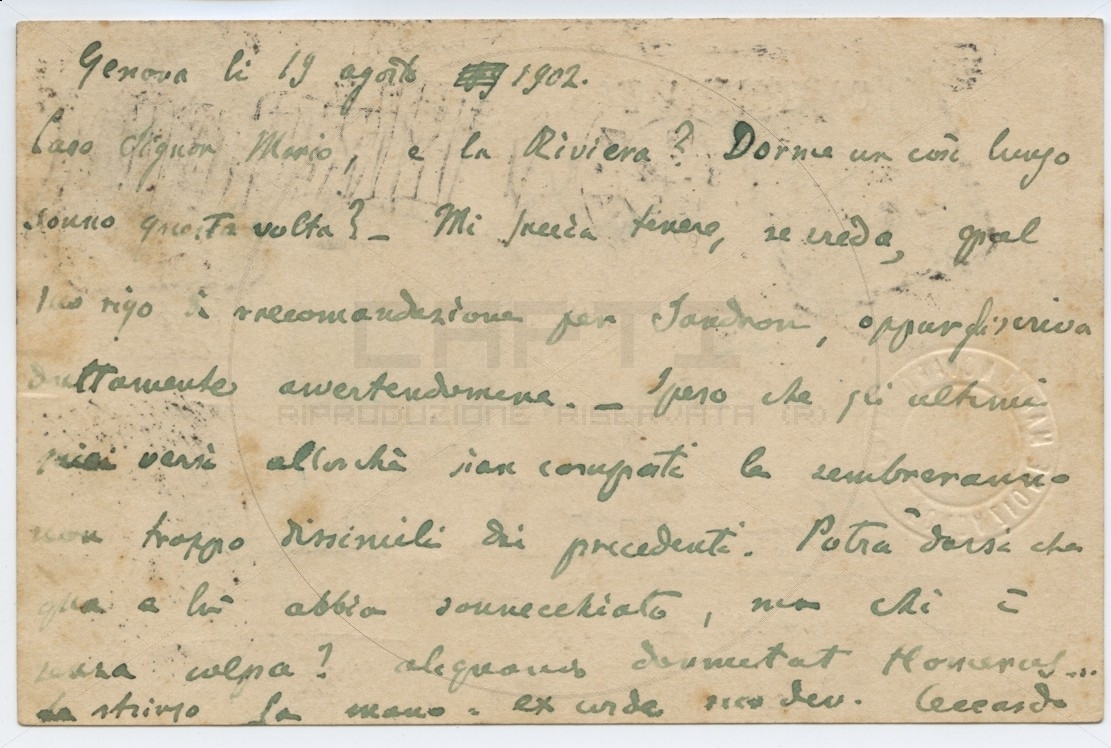 Genova li 19 agosto 1902.
Caro Signor Mario, e la Riviera? Dorme un così lungo
sonno questa volta? – Mi faccia tenere, se creda, qual
suo rigo di raccomandazione per Sandron, oppur gli scriva
direttamente avvertendomene. – Spero che gli ultimi
miei versi allorchè sian composti le sembreranno
non troppo dissimili dai precedenti. Potrà darsi che
qua a là abbia sonnecchiato, ma chi è
senza colpa? aliquando dormitat Homerus....
Le stringo la mano. ex corde suo dev. Ceccardo
CAPTI
RIPRODUZIONE RISERVATA (R)